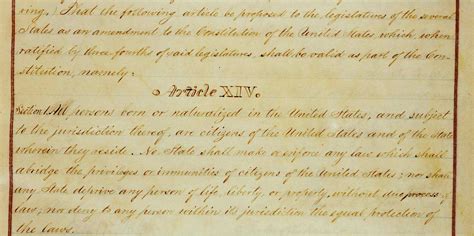 ring,) That the following article be proposed to the legislatures of the several
States as an amendment to the Constitution of the United States, which, when
ratified by three fourths of said legislatures, shall be valid as part of the Con-
stitution, namely:
Article XIV.
Section 1. All persons born or naturalized in the United States, and subject
to the jurisdiction thereof, are citizens of the United States and of the State
wherein they reside. No State shall make or enforce any law which shall
abridge the privileges or immunities of citizens of the United States; nor shall
any State deprive any person of life, liberty, or property, without due process of
law; nor deny to any person within its jurisdiction the equal protection of
the laws.